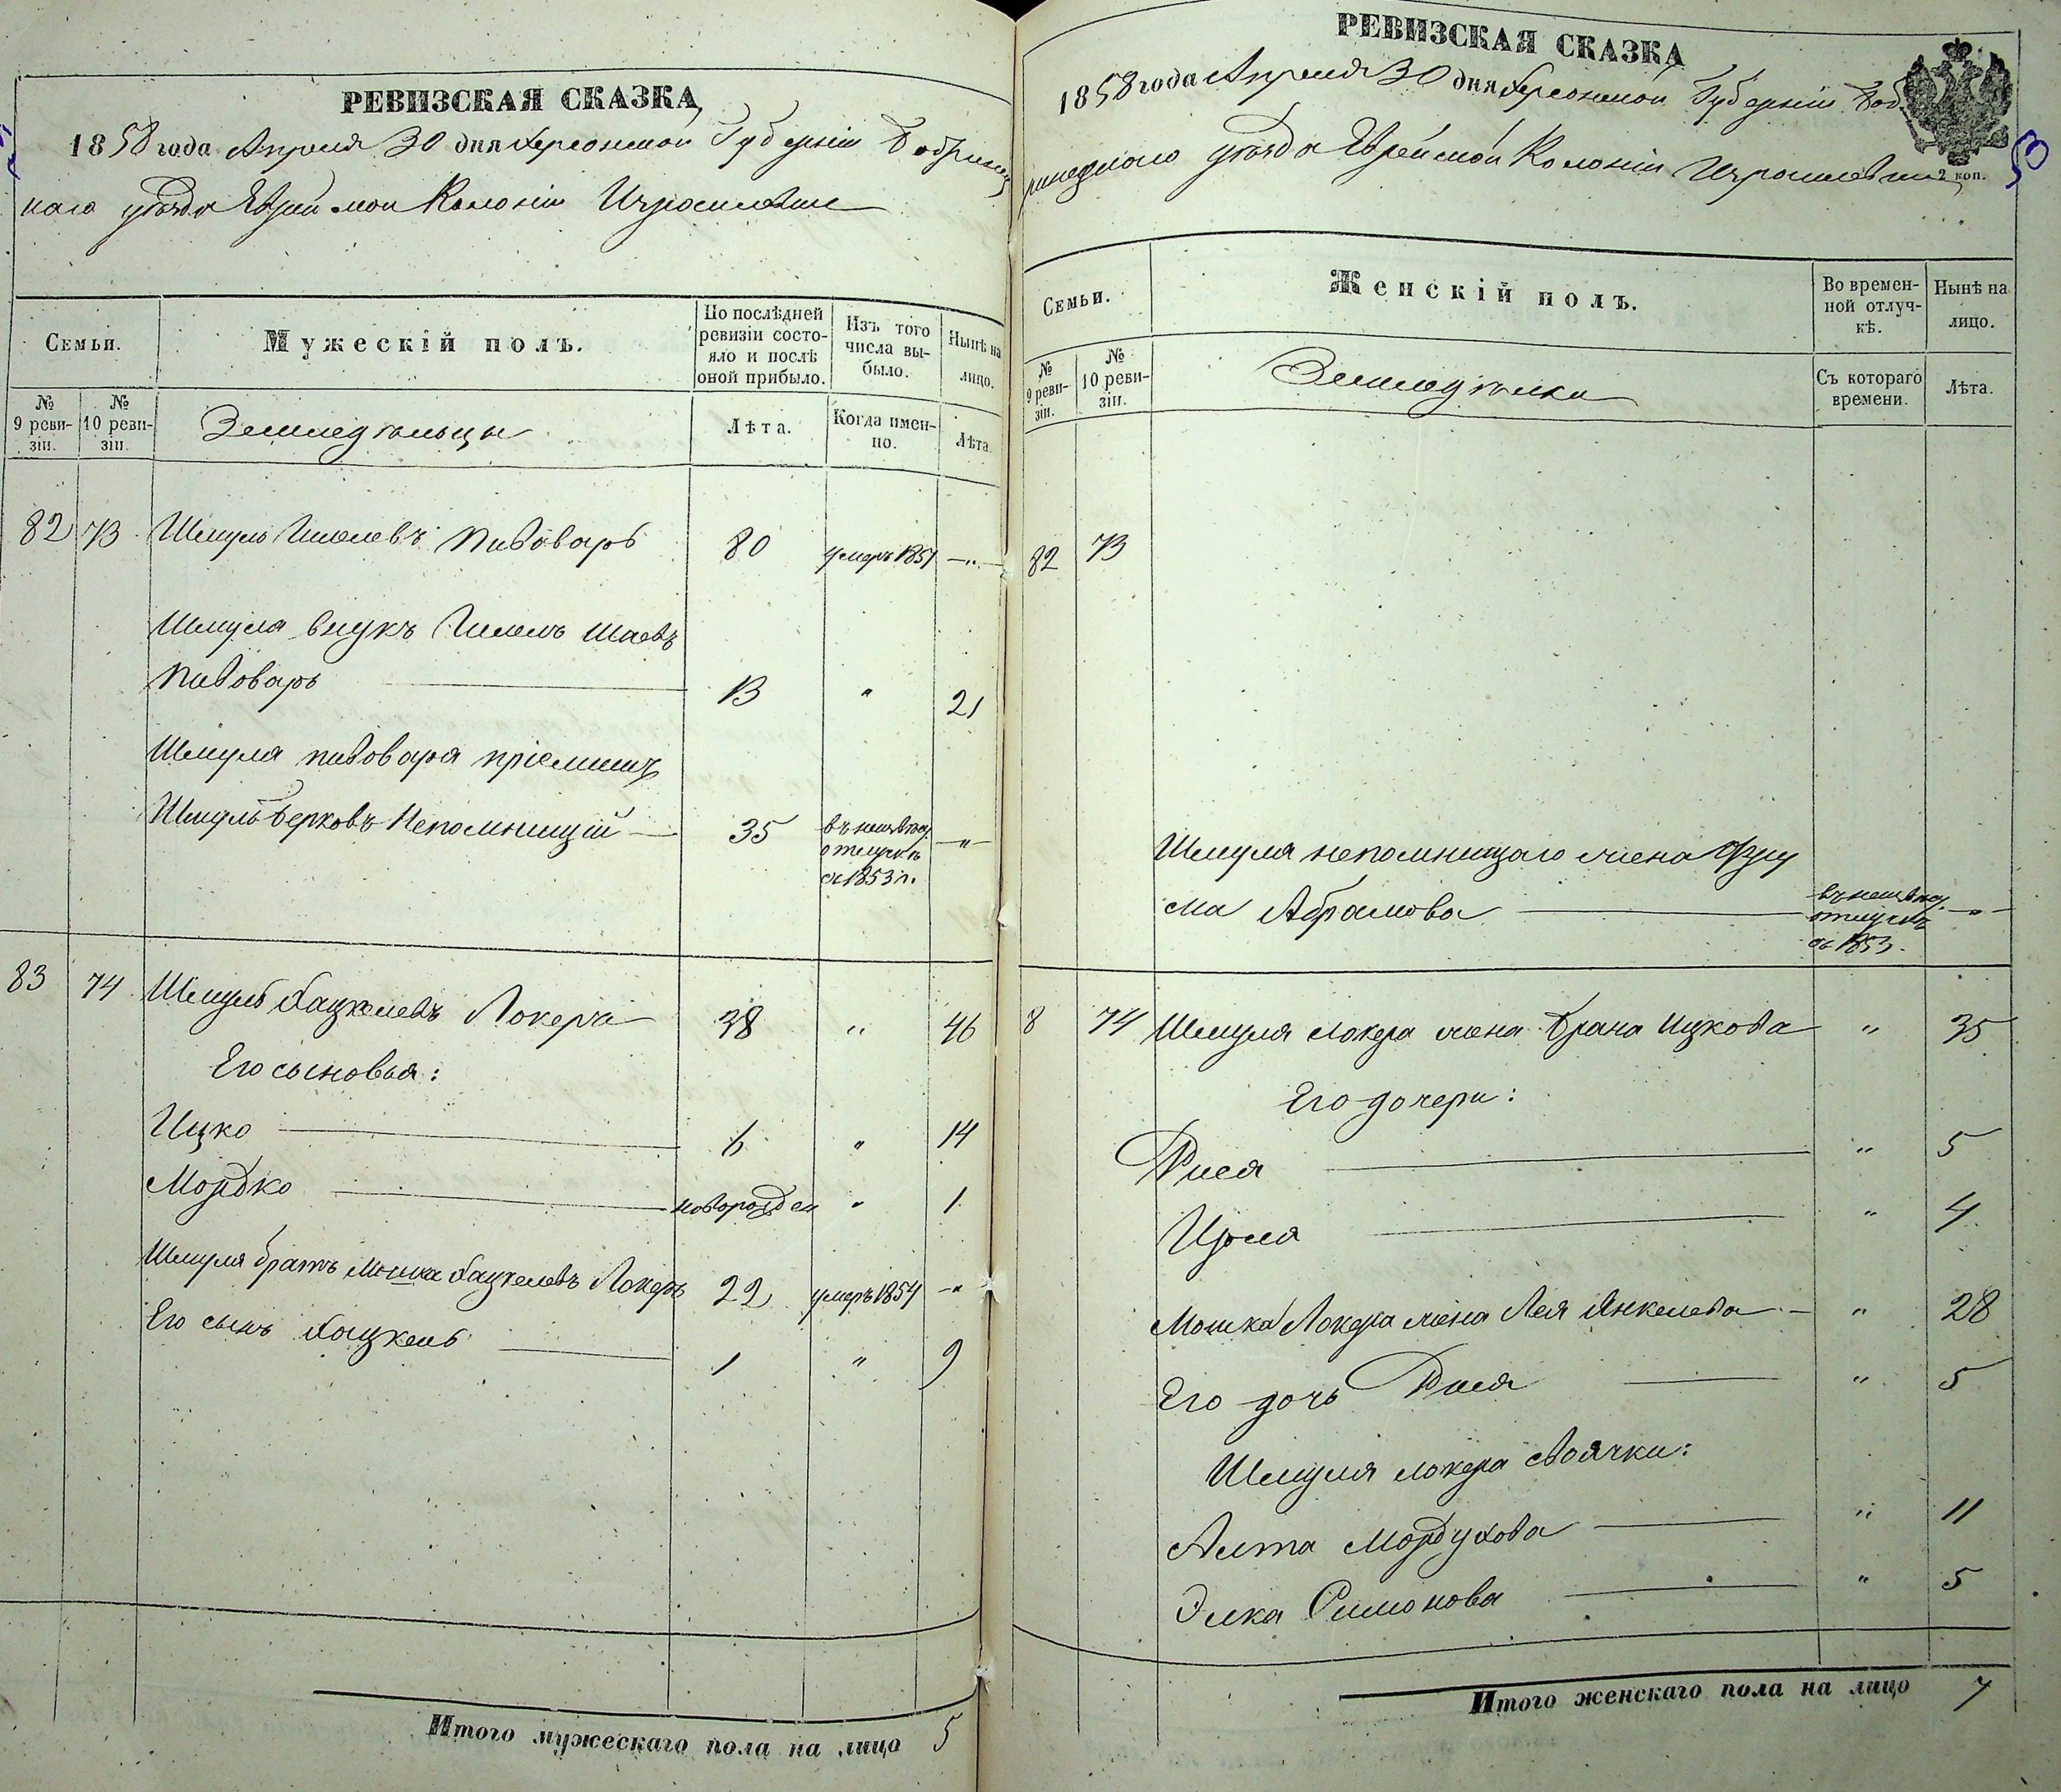 РЕВИЗСКАЯ СКАЗКА
1858 года Апреля 30 дня Херсонской Губерніи Бобринец
каго уѣзда Еврейской Колоніи Израилевки
Семьи.
Мужескій полъ.
По послѣдней ревизіи состояло и послѣ оной прибыло.
Изъ того числа выбыло.
Нынѣ на лицо.
№ 9 ревизіи.
№ 10 ревизіи.
Земледѣльцы
Лѣта.
Когда именно.
Лѣта.
82 73 Шмуль Пивоваръ 80 умеръ 1851 -"-
Шмуля внукъ Шаевъ
Пивоваръ 13 " 21
Шмуля пивовара пріемышъ
Шмуль Берковъ Непомнищій 35 въ неизвѣст. отлучкѣ съ 1853 г. -"-
83 74 Шмуль Хацкелевъ Локеръ 38 " 46
Его сыновья:
Ицко 6 " 14
Мордко новорожден " 1
Шмуля братъ Мошка Хацкелевъ Локеръ 22 умеръ 1854 -"
Его сынъ Хацкель 1 " 9
Итого мужескаго пола на лицо 5
РЕВИЗСКАЯ СКАЗКА
1858 года Апреля 30 дня Херсонской Губерніи Боб
ринецкаго уѣзда Еврейской Колоніи Израилевки
2 коп.
53
Семьи.
Женскій полъ.
Во временной отлучкѣ.
Нынѣ на лицо.
№ 9 ревизіи.
№ 10 ревизіи.
Земледѣлки
Съ котораго времени.
Лѣта.
82 73
Шмуля непомнищаго жена Фру
ма Абрамова въ неизвѣст. отлучкѣ съ 1853. -"-
8 74 Шмуля Локера жена Брана Ицкова " 35
Его дочери:
Рися " 5
" 4
Мошка Локера жена Лея Янкелева " 28
Его дочь Рися " 5
Шмуля локера своячки:
Алта Мордухова " 11
Элка Симонова " 5
Итого женскаго пола на лицо 7